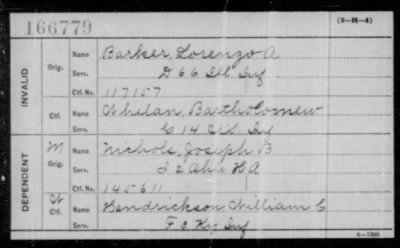 166779
(3-H-4)
INVALID
Orig. Name Barker, Lorenzo A
Serv. D 66 Ill Inf
Ctf. No. 117157
Ctf. Name Whelan, Bartholomew
Serv. C 14 Inf
DEPENDENT
M Orig. Name Nichols, Joseph B
Serv. I 2 Ohio H A
Ctf. No. 145611
Ctf. Name Hendrickson William C
Serv. F Ky Inf